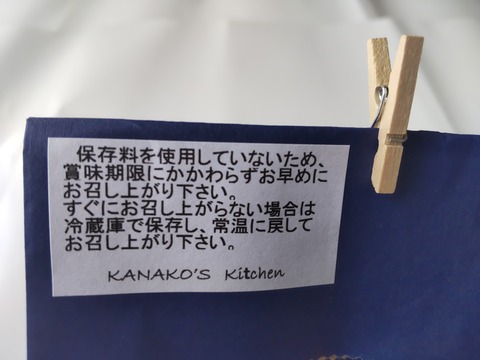 保存料を使用していないため、
賞味期限にかかわらずお早めに
お召し上がり下さい。
すぐにお召し上がらない場合は
冷蔵庫で保存し、常温に戻して
お召し上がり下さい。
KANAKO'S Kitchen